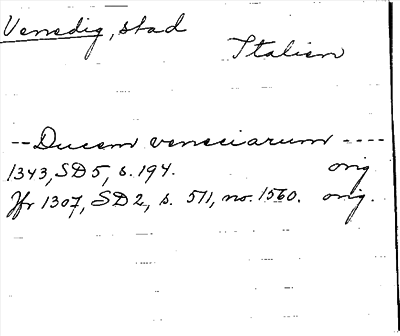 Venedig, stad
Italien
-- Ducem veneciarum ----
1343, SD 5, s. 194. orig
Jfr 1307, SD 2, s. 511, no. 1560. orig.